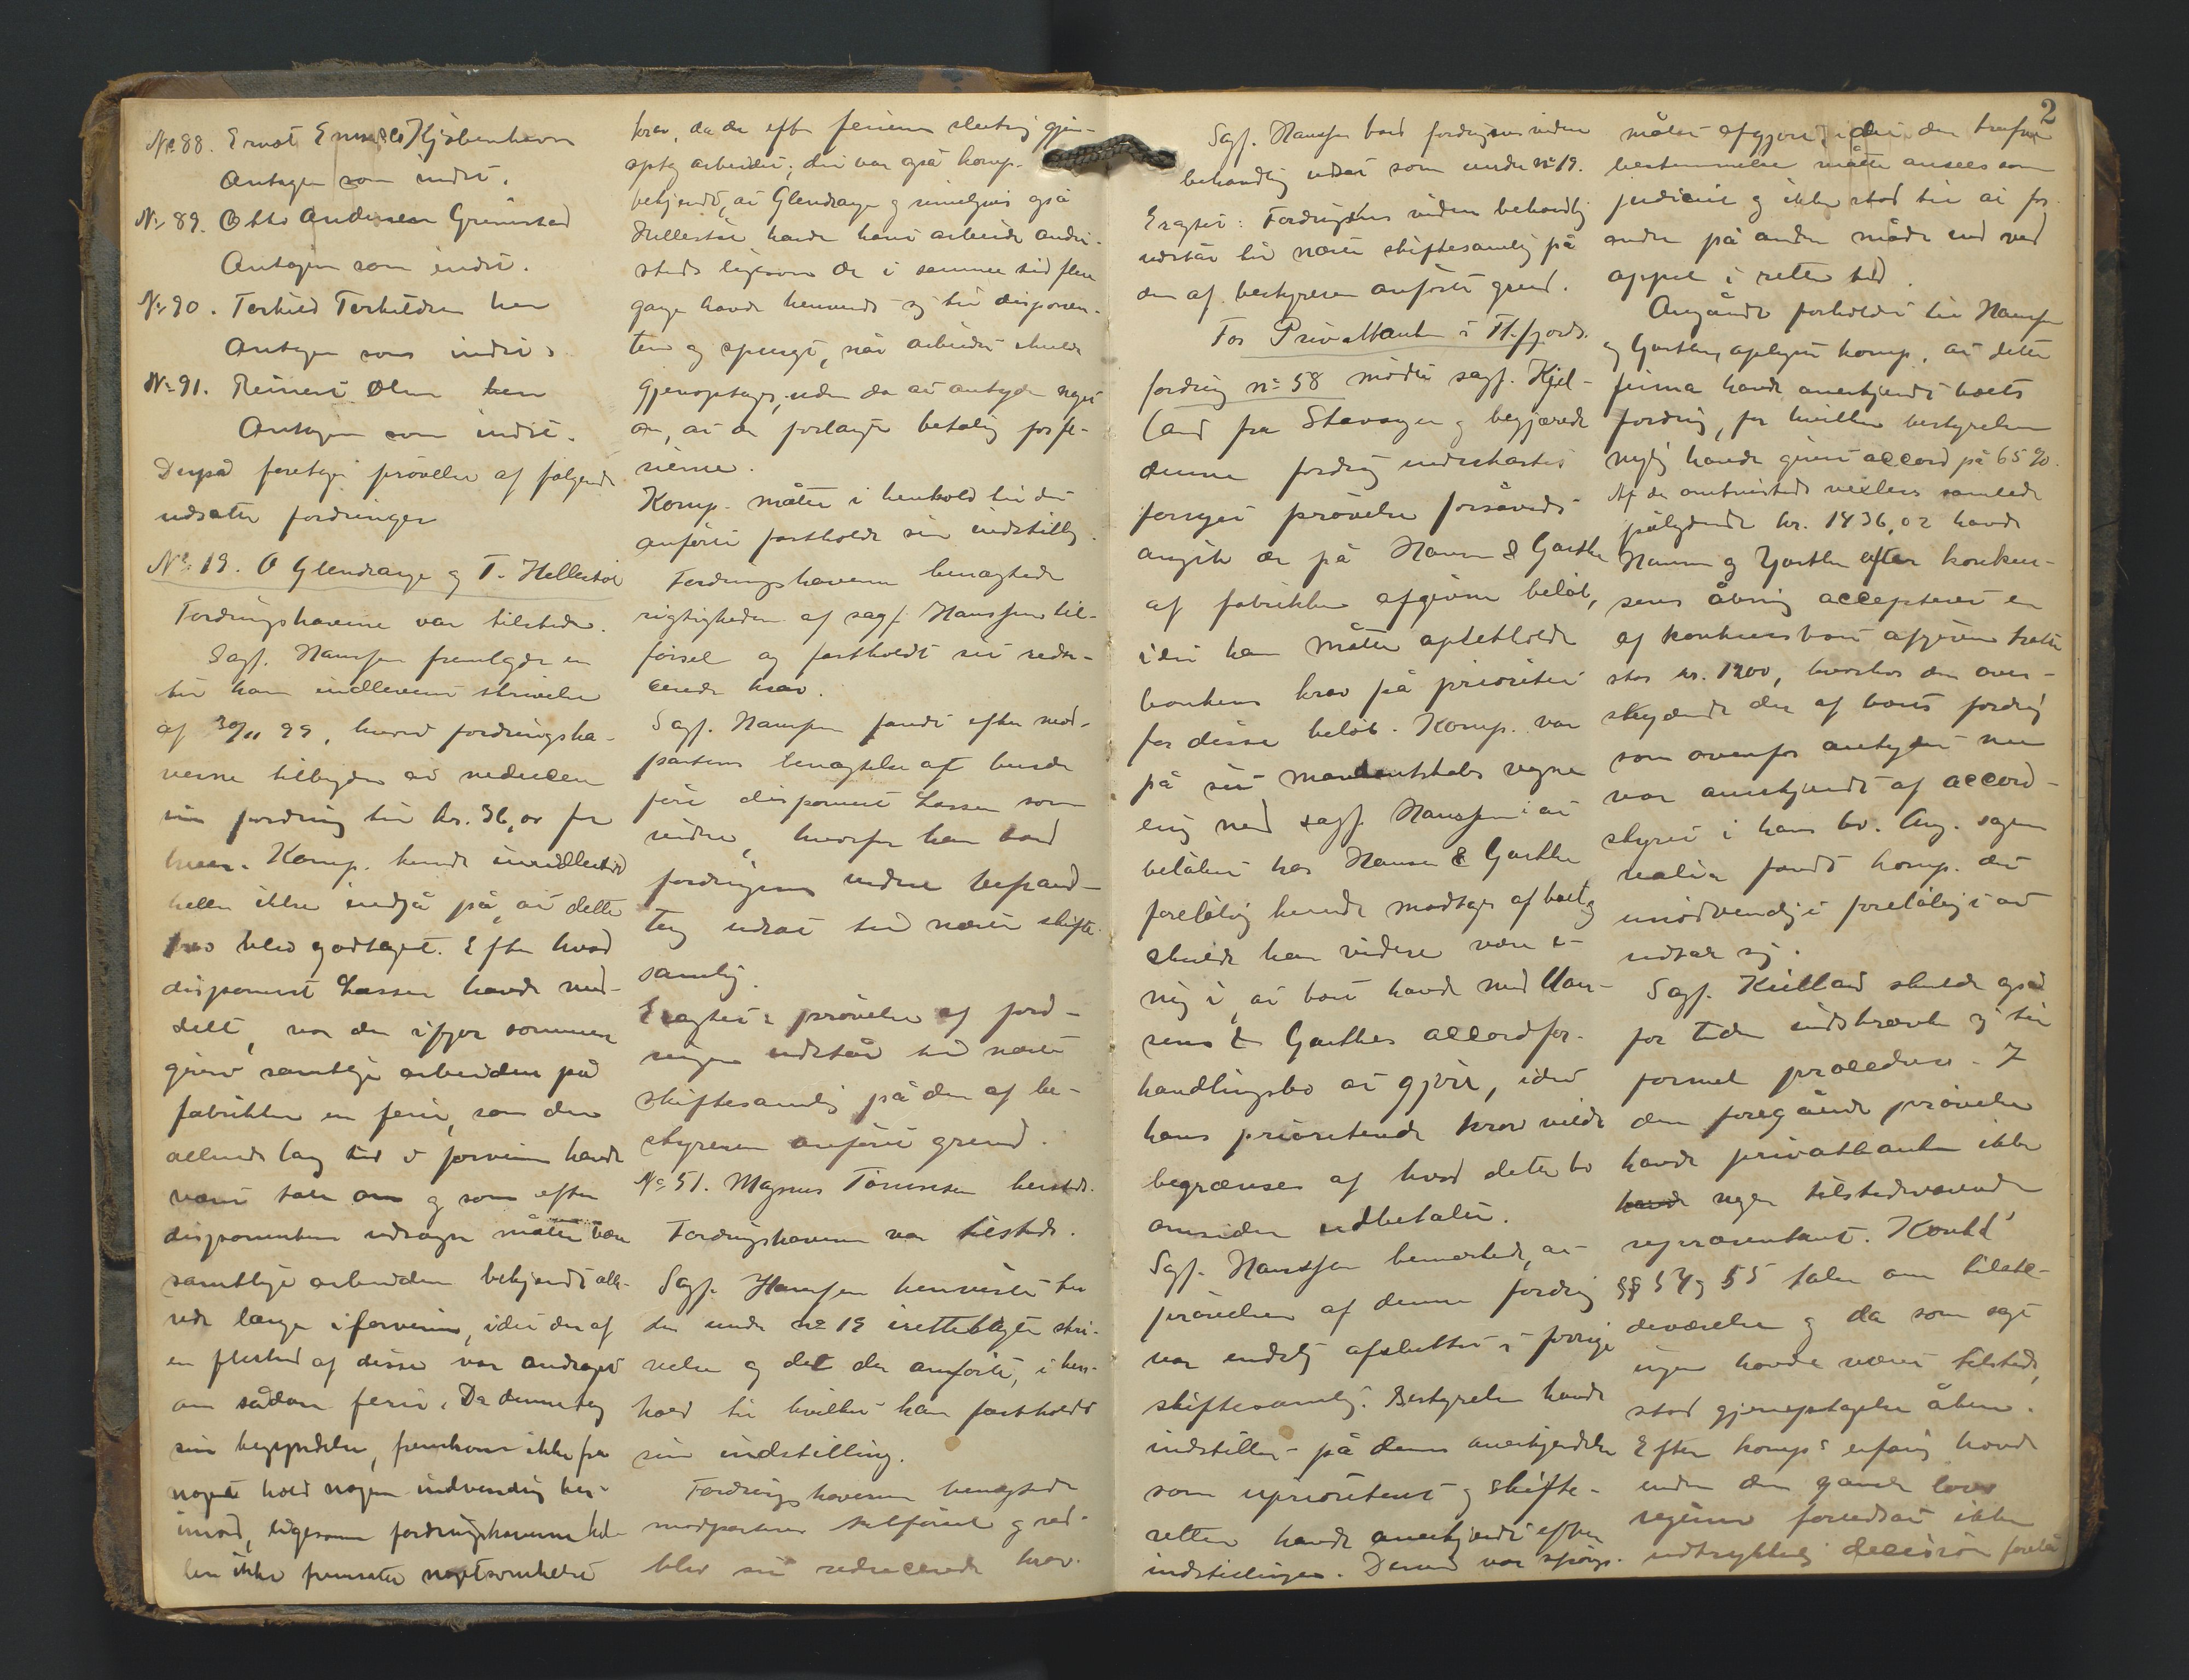 No 88. Ernst Kjøbenhavn
Antagen som indst.
No 89. Otto Andersen Grimstad
Antagen som indst.
No 90. Terkild Terkildsen her
Antagen som indst.
No 91. Reinert Olsen her
Antagen som indst.
Derpå foretoges prøvelse af følgende
udsatte fordringer
No 19. O Glendrange og T. Hellestøl
Fordringshaverne var tilstede.
Sagf. Hanssen fremlagde en
til ham indleveret skrivelse
af 30/11 99, hvori fordringsha-
verne tilbyder at reducere
sin fordring til kr. 36,00 for
hver. Komp. kunde imidlertid
heller ikke indgå på, at dette
krav blev godtaget. Efter hvad
disponent Lassen havde med-
delt, var der ifjor sommer
givet samtlige arbeidere på
fabrikken en ferie, som der
allerede lang tid i forveien havde
været tale om og som efter
disponentens udsagn måtte være
samtlige arbeidere bekjendt alle-
rede længe i forveien, idet der af
en flerhed af disse var andraget
om sådan ferie. Da denne tog
sin begyndelse, fremkom ikke fra
noget hold nogen indvending her-
imod, ligesom fordringshaverne hel-
ler ikke fremsatte nogetsomhelst
krav, da de efter feriens slutning gjen-
optog arbeidet; det var også komp.
bekjendt, at Glendrange og rimeligvis også
Hellestøl havde havt arbeide andet-
steds ligesom de i samme tid flere
gange havde henvendt sig til disponen-
ten og spurgt, når arbeidet skulde
gjenoptages, uden da at antyde noget
om, at de forlangte betaling for fe-
rierne.
Komp. måtte i henhold til det
anførte fastholde sin indstilling.
Fordringshaverne benægtede
rigtigheden af sagf. Hanssens til-
førsel og fastholdt sit redu-
cerede krav.
Sagf. Hanssen fandt efter mod-
partens benægtelse at burde
føre disponent Lassen som
vidne, hvorfor han bad
fordringens videre behand-
ling udsat til næste skifte-
samling.
Eragtet: prøvelse af ford-
ringen udstår til næste
skiftesamling på den af be-
styreren anførte grund.
No 51. Magnus Tønnesen hersteds.
Fordringshaveren var tilstede.
Sagf. Hanssen henviste til
den under no 19 irettelagte skri-
velse og det der anførte, i hen-
hold til hvilket han fastholdt
sin indstilling.
Fordringshaveren benægtede
modpartens tilførsel og ved-
blev sit reducerede krav.
2
Sagf. Hanssen bad fordringens videre
behandling udsat som under no 19.
Eragtet: Fordringens videre behandling
udstår til næste skiftesamling på
den af bestyreren anførte grund.
For Privatbanken i Fl.fjords
fordring no 58 mødte sagf. Kjel-
land fra Stavanger og begjærede
denne fordring underkastet
fornyet prøvelse forsåvidt
angik de på Hansen & Garthe
af fabrikken afgivne beløb,
idet han måtte opretholde
bankens krav på prioritet
for disse beløb. Komp. var
på sit mandantskabs vegne
enig med sagf. Hanssen i at
beløbet hos Hansen & Garthe
foreløbig kunde modtages af boet og
skulde han videre være e-
nig i, at boet havde med Han-
sens & Garthes accordfor-
handlingsbo at gjøre, idet
hans prioriterede krav vilde
begrænses af hvad dette bo
omsider udbetaler.
Sagf. Hanssen bemærkede, at
prøvelsen af denne fordring
var endelig afsluttet i forrige
skiftesamling. Bestyrelsen havde
indstillet på dens anerkjendelse
som uprioriteret og skifte-
retten havde anerkjendt efter
indstillingen. Dermed var spørgs-
målet afgjort, idet den trufne
bestemmelse måtte ansees som
judiciel og ikke stod til at for-
andre på anden måde end ved
appel i rette tid.
Angående forholdet til Hansen
og Garthe, oplyste komp., at dette
firma havde anerkjendt boets
fordring, for hvilken bestyrelsen
nylig havde givet accord på 65%.
Af de omtvistede vexlers samlede
pålydende kr. 1436,02 havde
Hansen og Garthe efter konkur-
sens åbning accepteret en
af konkursboet afgiven tratte
stor kr. 1200, hvorhos den over-
skydende del af boets fordring
som ovenfor antydet nu
var anerkjendt af accord-
styret i hans bo. Ang. sagens
realia fandt komp. det
unødvendigt foreløbig at
udtale sig.
Sagf. Kielland skulde også
for tiden indskrænke sig til
formel procedure. I
den foregående prøvelse
havde privatbanken ikke
havde nogen tilstedeværende
repræsentant. Konkl.
§§ 54 og 55 taler om tilste-
deværelse og da som sagt
ingen havde været tilstede,
stod gjenoptagelse åben.
Efter komp's erfaring havde
under den gamle lovs
regime forudsat ikke
udtrykkelig decision forelå